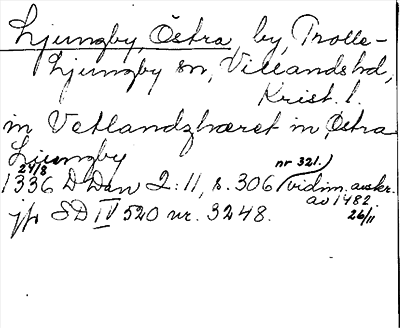 Ljungby, Östra, by, Trolle-
Ljungby sn, Villands hd,
Krist. l.
in Vetlandzhæret in Østra
Liungby
24/8 1336 D Dan 2:11, s. 306 (nr 321.) vidim. avskr. av 1482 26/11
jfr SD IV 520 nr. 3248.